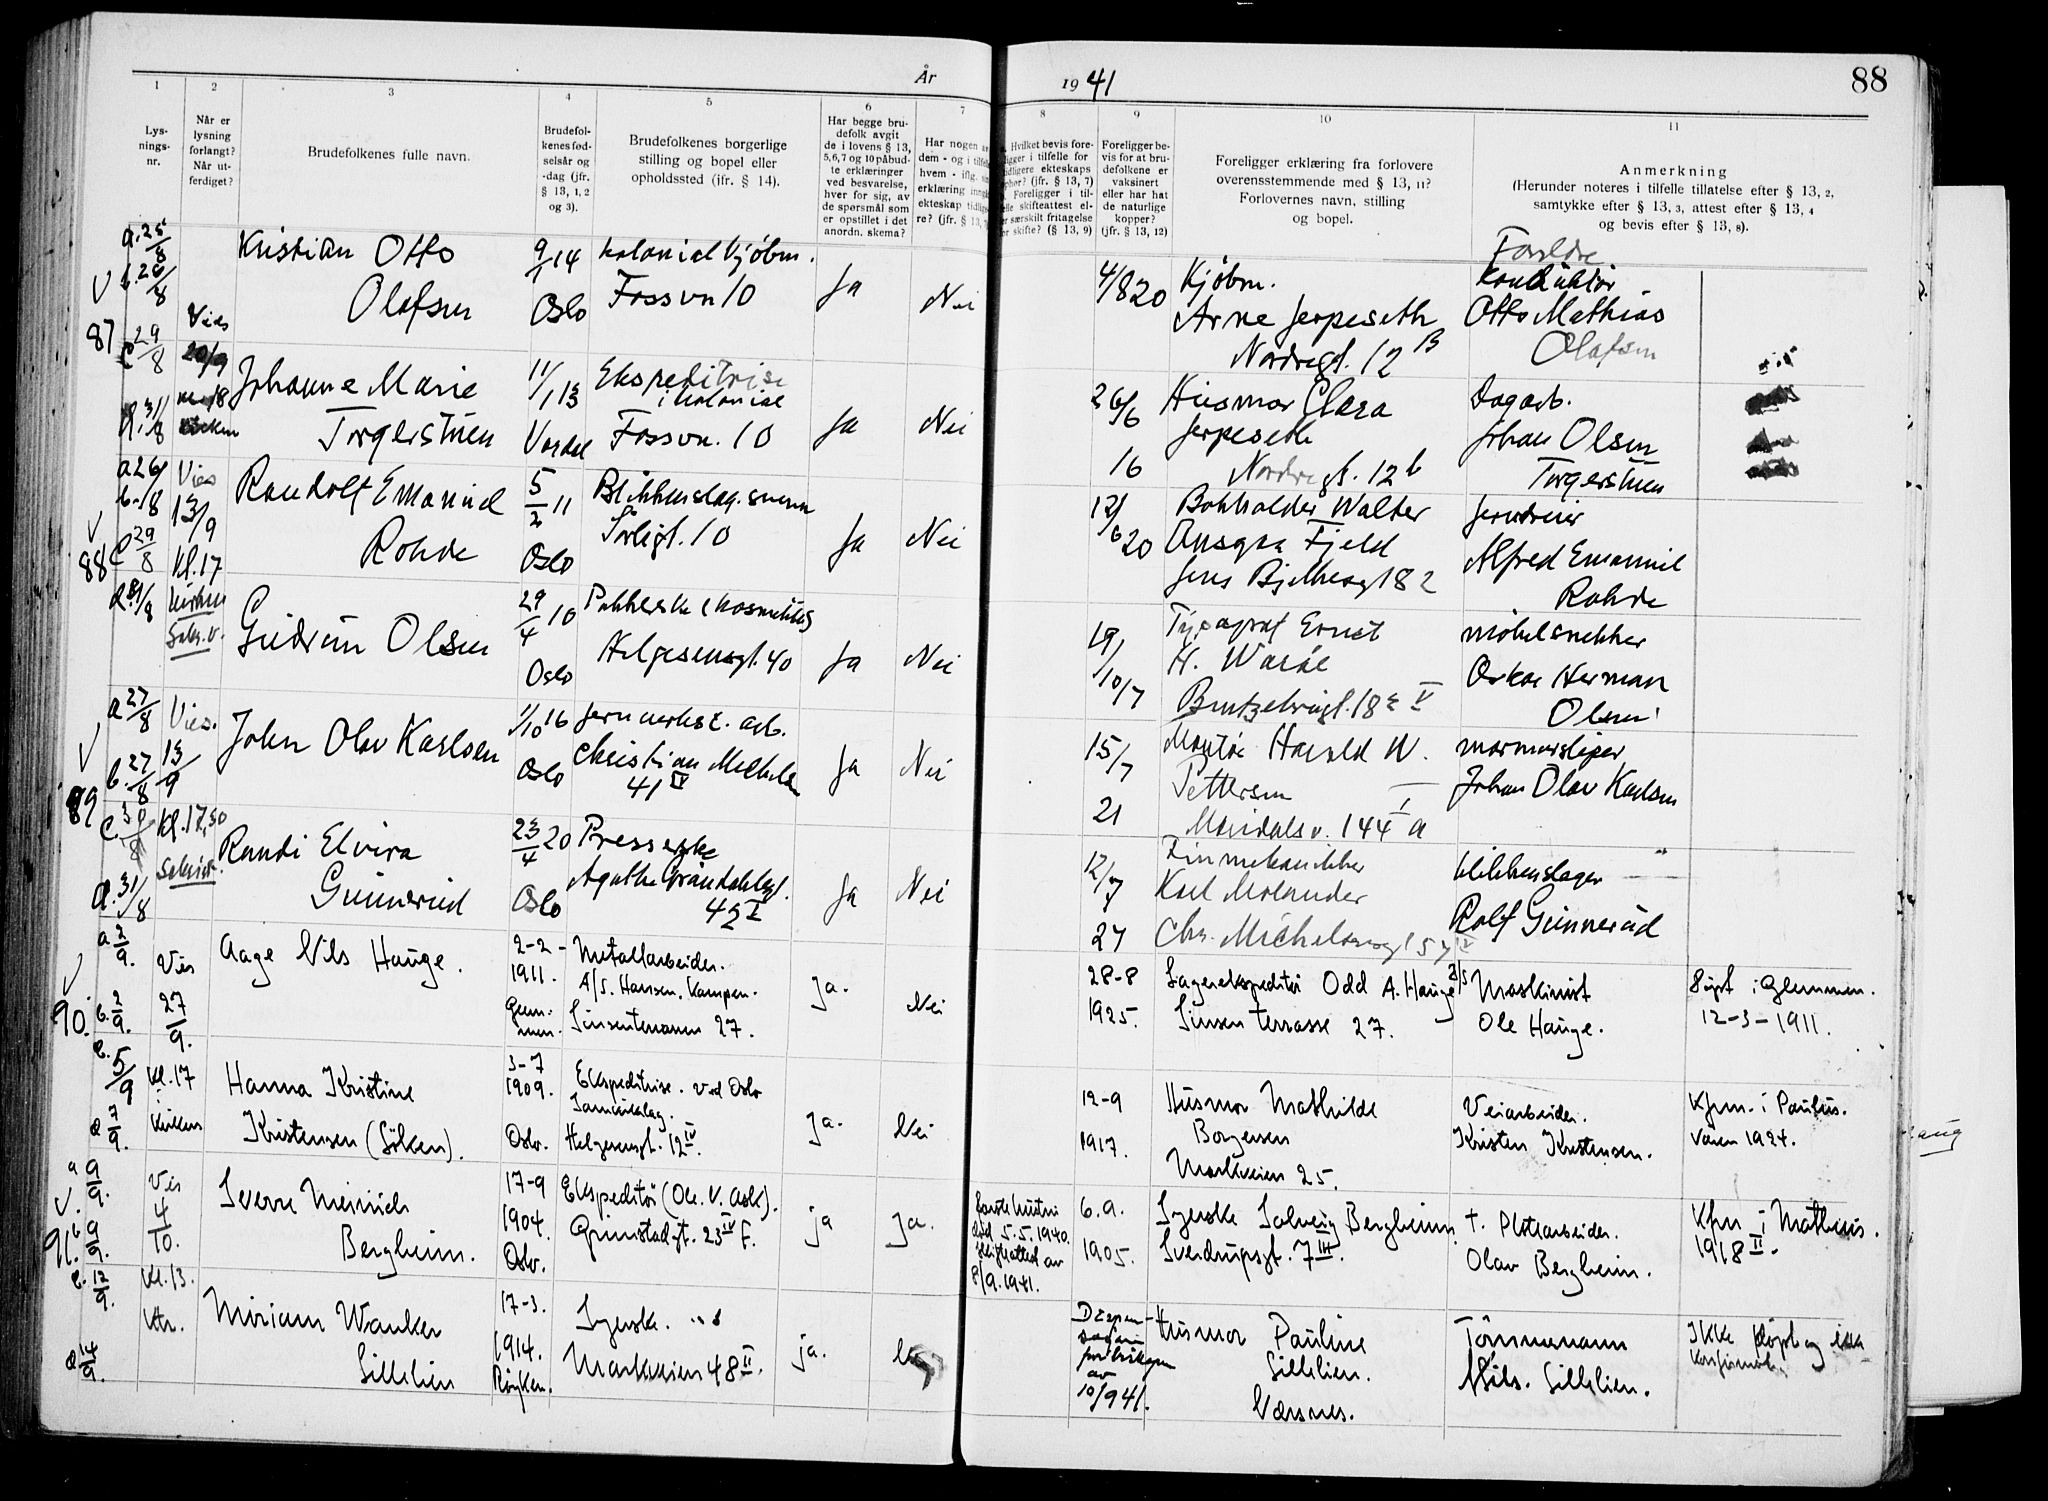 År
19 41
88
1
2
3
4
5
6
7
8
9
10
11
Lys-
nings-
nr.
Når er
lysning
forlangt?
Når ut-
ferdiget?
Brudefolkenes fulle navn.
Brudefol-
kenes fød-
selsår og
-dag (jfr.
§ 13, 1, 2
og 3).
Brudefolkenes borgerlige
stilling og bopel eller
opholdssted (ifr. § 14).
Har begge bru-
defolk avgit
de i lovens § 13,
5, 6, 7 og 10 påbud-
te erklæringer
ved besvarelse,
hver for sig, av
de spørsmål som
er opstillet i det
anordn. skema?
Har nogen a
dem - og i tilfe
hvem - iflg.
erklæring inng
ekteskap tidlig
re? (jfr. § 13,
Hvilket bevis fore-
ligger i tilfelle for
tidligere ekteskaps
ophør? (jfr. § 13, 7)
Foreligger i til-
felle skifteattest el-
er særskilt fritagelse
r skifte? (§ 13, 9)
Foreligger be-
vis for at bru-
defolkene er
vaksinert
eller har hat
de naturlige
kopper?
(jfr. § 13, 12)
Foreligger erklæring fra forlovere
overensstemmende med § 13, 11?
Forlovernes navn, stilling
og bopel.
Anmerkning
(Herunder noteres i tilfelle tillatelse efter § 13, 2,
samtykke efter § 13, 3, attest efter § 13, 4
og bevis efter § 13, 8).
Foreldre
87
a. 25/8
b. 26/8
c 29/8
d. 31/8
Vies
20/9
Kristian Otto
Olafsen
9/1 14
Oslo
kolonial kjøbm.
Fossvn 10
Ja
Nei
4/8 20
Kjøbm.
Arne Jerpeseth
Nordregt. 12 B
Konduktør
Otto Mathias
Olafsen
Johanne Marie
Torgerstuen
11/1 13
Vardal
Ekspeditrise
i kolonial
Fossvn. 10
Ja
Nei
26/6
16
Husmor Clara
Jerpeseth
Nordregt. 12 b
Dagarb.
Johan Olsen
Torgerstuen
88
a 26/8
b. /8
c 29/8
d 31/8
Vies
13/9
Kl. 17
Kirken
Randolf Emanuel
Rohde
5/2 11
Oslo
Blikkenslag.svenn
Sørligt. 10
Ja
Nei
12/6 20
Bokholder Walter
Ansgar Fjeld
Jens Bjelkesgt 82
Jerndreier
Alfred Emanuel
Rohde
Gudrun Olsen
29/4 10
Oslo
Pakkerske i kosmetikk
Helgesensgt. 40
Ja
Nei
19/
10/7
Typograf Ernst
H.
møbelsnekker
Oskar Herman
Olsen
89
a 27/8
b. 27/8
d. 31/8
Vies.
13/9
Kl. 17,30
John Olav Karlsen
1/10 16
Oslo
Jernverkst. arb.
Christian Michels
41 IV
Ja
Nei
15/7
21
Montør Harald W.
Pettersen
Maridalsv. 144 a
marmorsliper
Johan Olav Karlsen
Randi Elvira
Gunnerud
23/4 20
Oslo
Presserske
Agathe Grøndahlsgt.
45 I
Ja
Nei
12/7
27
Finmekanikker
Karl Molander
Chr. Michelsensgt 57 IV
blikkenslager
Rolf Gunnerud
90.
a 2/9.
b. 2/9.
c. 5/9
d 7/9.
Vies
27/9.
Kl. 17
Kirken
Aage Nils Hauge.
2-2-
1911.
Glem-
men.
Metallarbeider.
A/S. Hansen, Kampen.
Sinsenterrassen 27.
Ja.
Nei
28-8
1925.
Lagerekspeditør Odd A. Hauge
Sinsen terrasse 27.
Maskinist
Ole Hauge.
Døpt i Glemmen.
12-3-1911.
Hanna Kristine
Kristensen (Söken).
3-7
1909.
Oslo.
Ekspeditrise. ved Oslo
Samvirkelag.
Helgesensgt. 12 IV
Ja.
Nei
12-9
1917.
Husmor Mathilde
Borgersen
Markveien 25.
Veiarbeider.
Kristen Kristensen.
Kfm. i Paulus.
Våren 1924.
91.
a 9/9.
b 9/9.
c. 12/9.
d 14/9.
Vies
4/10.
Kl. 13.
Ktr.
Sverre Meinich
Bergheim.
17-9
1904.
Oslo.
Ekspeditør (Ole. V. Oslo).
Grimstadgt. 23 IV F.
ja
Ja.
første hustru
død 5.5.1940.
skifteattest av
8/9.1941.
6.9.
1905.
Syerske Solveig Bergheim
Sverdrupsgt. 7 III.
†. Platearbeider.
Olav Bergheim.
Kfm i Mattheus.
1918 II.
Miriam Wanker
Sillelien
17-3.
1914.
Røyken.
Syerske.
Markveien 48 II.
ja.
Dispen-
sasjon
fra biskopen
av
10/9 41.
Husmor Pauline
Sillelien.
Nærsnes.
Tømmermann
Nils. Sillelien.
Ikke døpt og ikke
konfirmert.